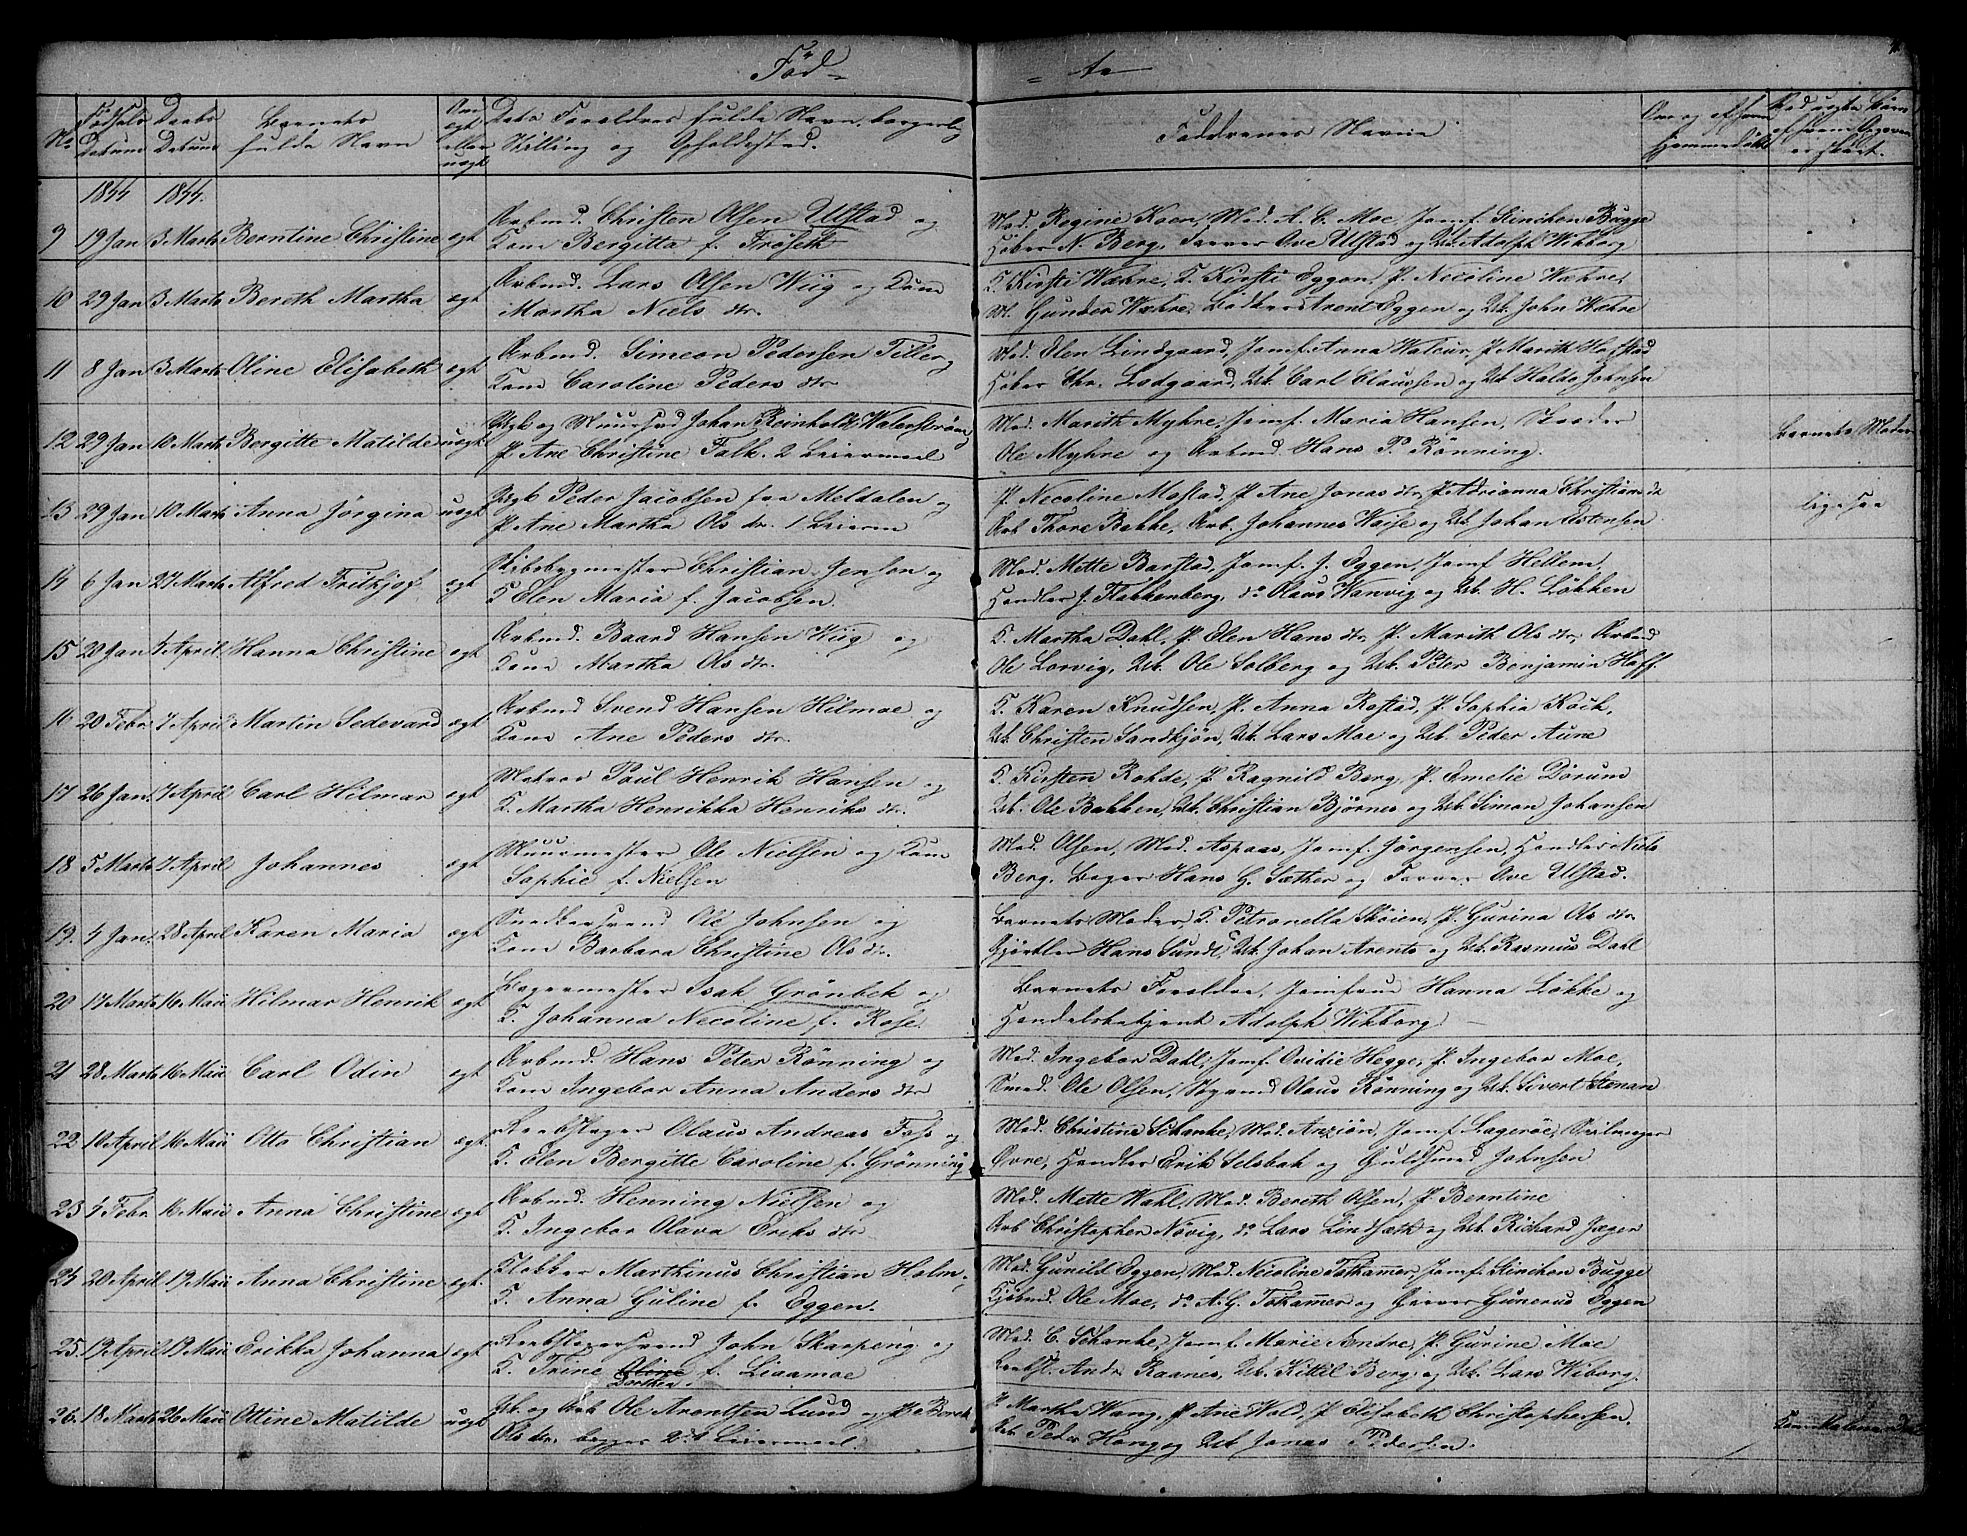 Föd-
-te
No
Fødsels Datum
Daabs Datum
Barnets fulde Navn
Om ægte eller uægt
Dets Foreldres fulde Navn, borgerlig Stilling og Opholdssted.
Faddrenes Navne
Om og af hvem hjemmedøbt
Ved uægte Børn af hvem Opgaven er skeet.
1844 1844.
9 19 Jan 3 Marts Berntine Christine ægt
Arbmd. Christen Olsen Ulstad og
Kone Bergitta f. Fröseth
Mad. Regine Koen, Mad. A. C. Moe, Jomf. Stinchen Bugge
Høker N. Berg, Farver Ove Ulstad og Uk. Adolph Wiborg
10 29 Jan 3 Marts Bereth Martha ægt
Arbmd. Lars Olsen Wiig og Kone
Martha Niels dtr.
K. Kirsti Wæhre, K. Kirsti Eggen, P. Nicoline Wæhre,
Gunder Wæhre, Bødker Arent Eggen og Uk. John Wæhre
11 8 Jan 3 Marts Oline Elisabeth ægt
Arbmd. Simeon Pedersen Tiller og
Kone Caroline Peders dtr
Mad. Elen Lindgaard, Jomf. Anna Wateur, P. Marith Hofstad
Høker Chr. Lodgaard, Uk. Carl Claussen og Uk. Haldo Johnsen
12 29 Jan 10 Marts Bergitte Matilde uægt
Ugk og Muursvd Johan Reinholdt Waterström
P. Ane Christine Falk. 2 Leiermaal
Mad. Marith Myhre, Jomf. Maria Hansen, Skræder
Ole Myhre og Arbmd. Hans P. Rönning.
Barnets Moder
13 29 Jan 10 Marts Anna Jørgina uægt
Ugk Peder Jacobsen fra Meldalen og
P. Ane Martha Ols dr. 1 Leierm
P. Nicoline Mostad, P. Ane Jonas dtr, P. Adrianna Christians dr
Arb Thore Bakke, Arb. Johannes Waise og Uk. Johan Estensen
ligesaa
14 6 Jan 27 Marts Alfred Fritkjof ægt
Skibsbygmester Christian Jensen og
K Elen Maria f. Jacobsen.
Mad. Mette Barstad, Jomf. J. Eggen, Jomf Hellem,
Handler J. Flakkenberg, do Olaus Wanvig og Uk. H. Løkken
15 20 Jan 4 April Hanna Christine ægt
Arbmd. Baard Hansen Wiig og
Kone Martha Ols dtr.
K. Martha Dahl, P. Elen Hans dtr, P. Marith Ols dtr, Arbmd
Ole Lorvig, Uk. Ole Solberg og Uk. Peter Benjamin Hoff
16 20 Febr. 7 April Martin Sedevard ægt
Arbmd Svend Hansen Hilmoe og
Kone Ane Peders dtr.
K. Karen Knudsen, P. Anna Rostad, P. Sophia Koch,
Uk. Christen Sandkjön, Uk. Lars Moe og Uk. Peder Aune
17 26 Jan. 7 April Carl Hilmar ægt
Matros Paul Henrik Hansen og
K. Martha Henrikka Henriks dr.
K. Kirsten Rohde, P. Ragnild Berg, P. Emelie Dörum
Uk. Ole Bakken, Uk. Christian Bjørnes og Uk. Simon Johansen
18 5 Marts 7 April Johannes ægt
Muurmester Ole Nielsen og Kone
Sophie f. Nielsen
Mad. Olsen, Mad. Aspaas, Jomf. Jørgensen, Handler Niels
Berg, Bager Hans G. Sæther og Farver Ove Ulstad.
19. 4 Jan. 28 April Karen Maria ægt
Snedkersvend Ole Johnsen og
Kone Barbara Christine Ols dr.
Barnets Moder, K. Petronella Skoien, P. Gurina Ols dtr
Gjørtler Hans Sundt, Uk. Johan Arents og Uk. Rasmus Dahl
20 17 Marts 16 Maii Hilmar Henrik ægt
Bagermester Isak Grönbek og
K. Johanna Necoline f. Rose.
Barnets Foreldre, Jomfrue Hanna Løkke og
Handelsbetjent Adolph Wikborg.
21 28 Marts 16 Maii Carl Odin ægt
Arbmd. Hans Peter Rönning og
Kone Ingebor Anna Anders dtr
Mad. Ingebor Dahl, Jomf. Ovidie Hegge, P. Ingebor Moe,
Smed. Ole Olsen, Olaus Rönning og Uk. Sivert Stenan
22 16 April 16 Maii Otto Christian ægt
Reebslager Olaus Andreas Foss og
K. Elen Bergitte Caroline f. Grönning
Mad. Christine Schanke, Mad. Anziön, Jomf. Lagerøe, Seilmager
Øvre, Handler Erik Selsbak og Guldsmed Johnsen
23 4 Febr. 16 Maii Anna Christine ægt
Arbmd. Henning Nielsen og
K. Ingebor Olava Eriks dtr
Mad. Mette Wahl, Mad. Bereth Olsen, P. Berntine
Arb Christopher Növig, do Lars Lindsæth og Uk. Richard Jæger
24 20 April 19 Maii Anna Christine ægt.
Klokker Marthinus Christian Holm,
K. Anna Guline f. Eggen.
Mad. Gunild Eggen, Mad. Nicoline Tokamer, Jomf. Stinchen Bugge
Kjøbmd. Ole Moe, do A. G. Tokamer og Garver Gunerus Eggen
25. 19 April 19 Maii Erikka Johanna ægt
Reebslagersvend John Skarpeng og
K. Trine Oline f. Liaamoe
Dorthea
Mad. C. Schanke, Jomf. Marie Andre, P. Gurine Moe
Reebsl. Andr. Raanes, Uk. Kittil Berg, og Uk. Lars Wiborg.
26. 18 Marts 26 Maii Ottine Matilde uægt
Uk. og Arb Ole Arentsen Lund og P. Bereth
Ols dr. begges 2det Leiermaal
P. Martha Wang, P. Ane Wold, P. Elisabeth Christophersen.
Arb. Peder Hang og Uk. Jonas Pedersen.